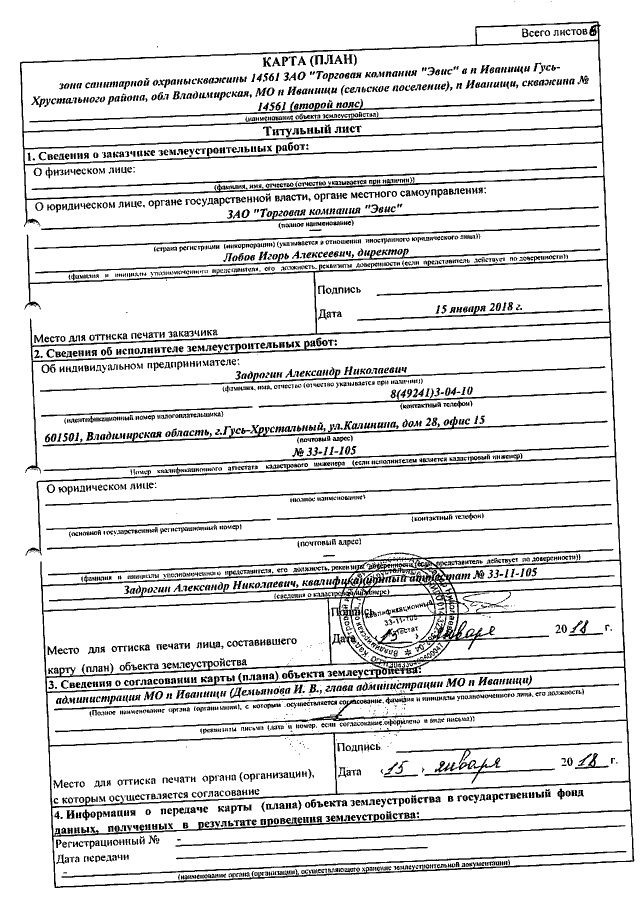 Всего листов
КАРТА (ПЛАН)
зона санитарной охраныскважины 14561 ЗАО "Торговая компания "Эвис" в п Иванищи Гусь-
Хрустального района, обл Владимирская, МО п Иванищи (сельское поселение), п Иванищи, скважина №
14561 (второй пояс)
(наименование объекта землеустройства)
Титульный лист
1. Сведения о заказчике землеустроительных работ:
О физическом лице:
(фамилия, имя, отчество (отчество указывается при наличии))
О юридическом лице, органе государственной власти, органе местного самоуправления:
ЗАО "Торговая компания "Эвис"
(полное наименование)
—
(страна регистрации (инкорпорации) (указывается в отношении иностранного юридического лица))
Лобов Игорь Алексеевич, директор
(фамилия и инициалы уполномоченного представителя, его должность, реквизиты доверенности (если представитель действует по доверенности))
Подпись
Дата 15 января 2018 г.
Место для оттиска печати заказчика
2. Сведения об исполнителе землеустроительных работ:
Об индивидуальном предпринимателе:
Задрогин Александр Николаевич
(фамилия, имя, отчество (отчество указывается при наличии))
8(49241)3-04-10
(идентификационный номер налогоплательщика) (контактный телефон)
601501, Владимирская область, г.Гусь-Хрустальный, ул.Калинина, дом 28, офис 15
(почтовый адрес)
№ 33-11-105
Номер квалификационного аттестата кадастрового инженера (если исполнителем является кадастровый инженер)
О юридическом лице:
(полное наименование)
(основной государственный регистрационный номер) (контактный телефон)
(почтовый адрес)
—
(фамилия и инициалы уполномоченного представителя, его должность, реквизиты доверенности (если представитель действует по доверенности))
Задрогин Александр Николаевич, квалификационный аттестат № 33-11-105
(сведения о кадастровом инженере)
Подпись
квалификационный
33-11-105
аттестат
Дата 15 января 2018 г.
Место для оттиска печати лица, составившего
карту (план) объекта землеустройства
3. Сведения о согласовании карты (плана) объекта землеустройства:
администрация МО п Иванищи (Демьянова И. В., глава администрации МО п Иванищи)
(Полное наименование органа (организации), с которым осуществляется согласование, фамилия и инициалы уполномоченного лица, его должность)
(реквизиты письма (дата и номер, если согласование оформлено в виде письма))
Подпись
Дата «15» января 2018 г.
Место для оттиска печати органа (организации),
с которым осуществляется согласование
4. Информация о передаче карты (плана) объекта землеустройства в государственный фонд
данных, полученных в результате проведения землеустройства:
Регистрационный № -
Дата передачи -
-
(наименование органа (организации), осуществляющего хранение землеустроительной документации)